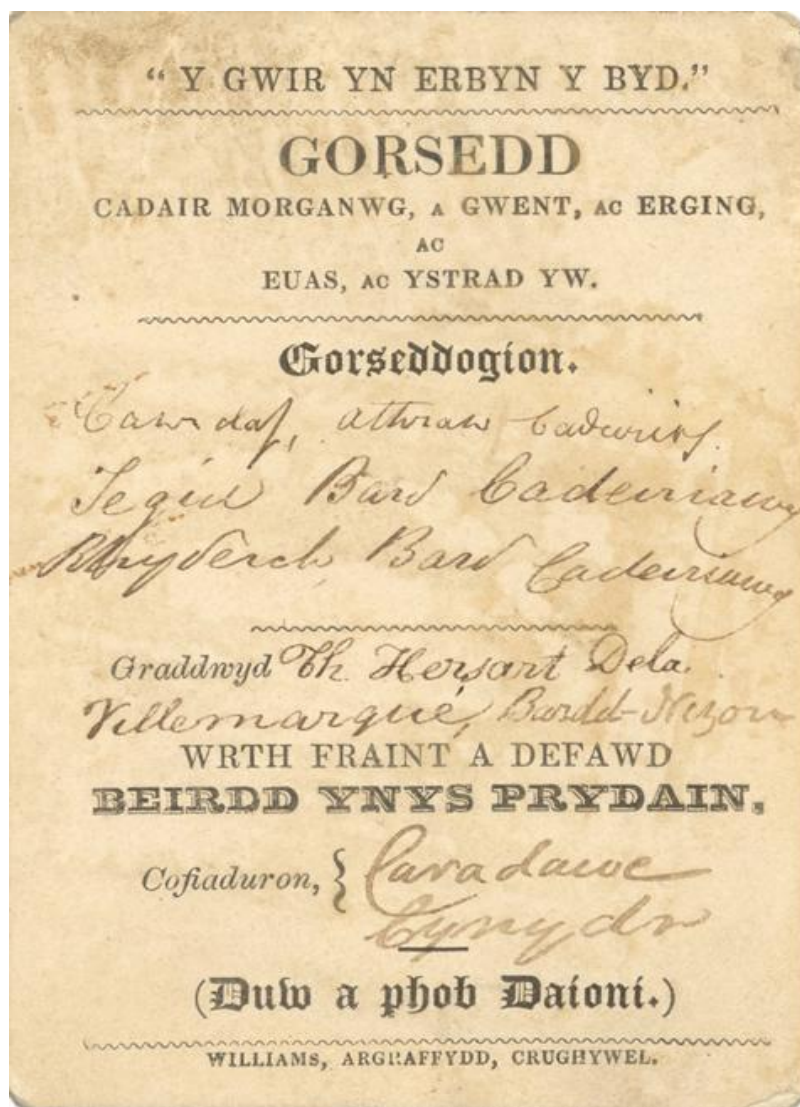 “ Y GWIR YN ERBYN Y BYD.”
GORSEDD
CADAIR MORGANWG, A GWENT, AC ERGING,
AC
EUAS, AC YSTRAD YW.
Gorseddogion.
Cawrdaf, attraw
Tegid Bard Cadeiriawg
Rhydderch Bard Cadeiriawg
Graddwyd Th. Hersart Dela
Villemarqué, Bardd-Nizon
WRTH FRAINT A DEFAWD
BEIRDD YNYS PRYDAIN,
Cofiaduron, { Caradawc
Cynydr
(Duw a phob Daioni.)
WILLIAMS, ARGRAFFYDD, CRUGHYWEL.